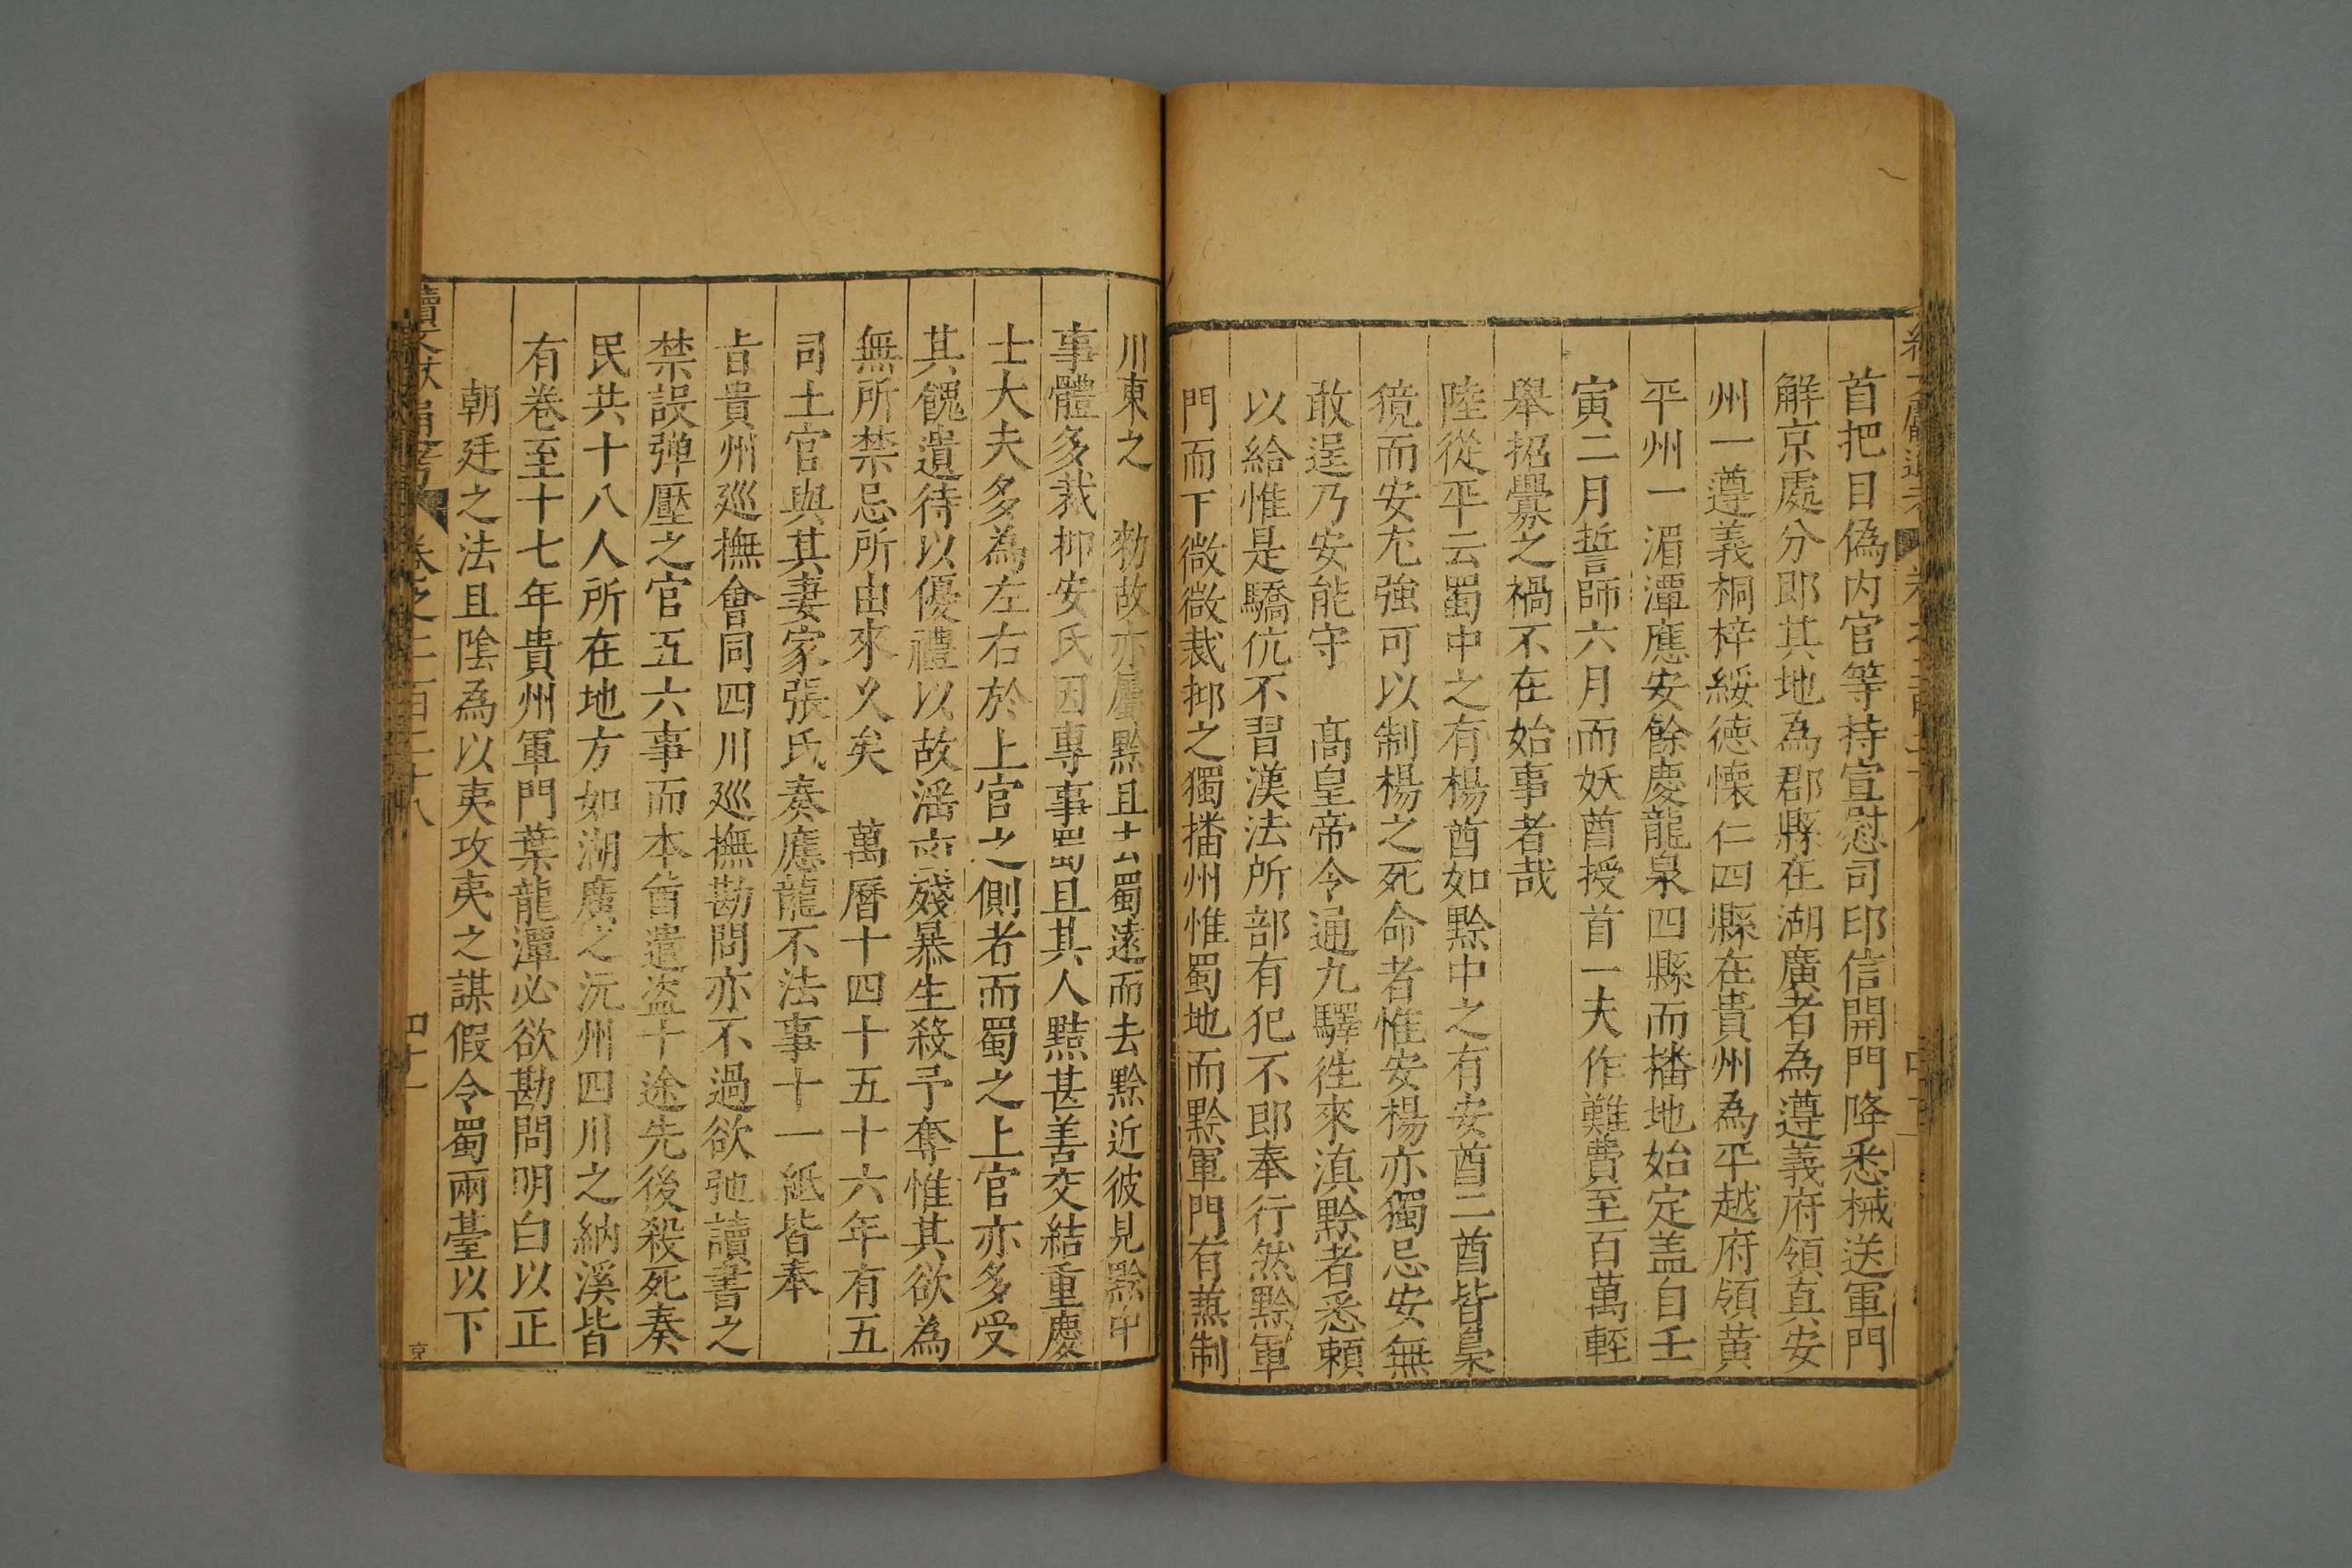 首把目偽内官等持宣慰司印信開門降悉械送軍門
解京處分即其地為郡縣在湖廣者為遵義府領真安
州一遵義桐梓綏德懷仁四縣在貴州為平越府領黄
平州一湄潭應安餘慶龍泉四縣而播地始定盖自壬
寅二月誓師六月而妖酋授首一夫作難費至百萬輕
舉招釁之禍不在始事者哉
陸從平云蜀中之有楊酋如黔中之有安酋二酋皆梟
獍而安尤強可以制楊之死命者惟安楊亦獨忌安無
敢逞乃安能守 高皇帝令通九驛徃來滇黔者悉賴
以給惟是驕伉不習漢法所部有犯不即奉行然黔軍
門而下微微裁抑之獨播州惟蜀地而黔軍門有兼制
川東之 勑故亦屬黔且去蜀遠而去黔近彼見黔中
事體多裁抑安氏因專事蜀且其人黠甚善交結重慶
士大夫多為左右於上官之側者而蜀之上官亦多受
其餽遺待以優禮以故滛 殘暴生殺予奪惟其欲為
無所禁忌所由來久矣 萬曆十四十五十六年有五
司土官與其妻家張氏奏應龍不法事十一紙皆奉
旨貴州巡撫會同四川巡撫勘問亦不過欲弛讀書之
禁設弹壓之官五六事而本酋遣盗十途先後殺死奏
民共十八人所在地方如湖廣之沅州四川之納溪皆
有卷至十七年貴州軍門葉龍潭必欲勘問明白以正
朝廷之法且陰為以夷攻夷之謀假令蜀兩臺以下
續文獻通考 卷之二百三十八 四十一